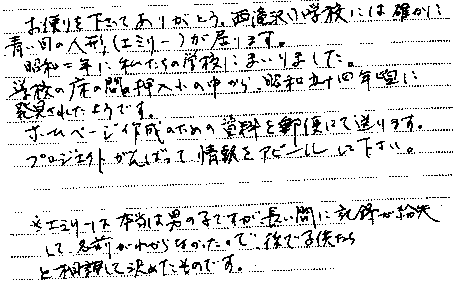 お便りを下さってありがとう。西滝沢小学校には確かに
青い目の人形(エミリー)が居ります。
昭和二年に私たちの学校にまいりました。
学校の床の間の押入れの中から、昭和五十四年頃に
発見されたようです。
ホームページ作成のための資料を郵便にて送ります。
プロジェクトがんばって情報をアピールして下さい。
※エミリーは本当は男の子ですが長い間に記録が紛失
して名前がわからなかったので、後で子供たち
と相談して決めたものです。